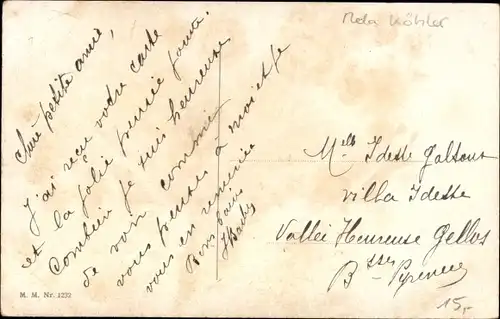 Mela Köhler
Chère petite amie,
J'ai reçu votre carte
et la jolie pensée jointe.
Combien je suis heureuse
de voir comme
vous pensez à moi et je
vous en remercie
Bons baisers
Melle Ideste
Villa Ideste
Vallée Heureuse Gellos
Bsses Pyrénées
M. M. Nr. 1222
15,-